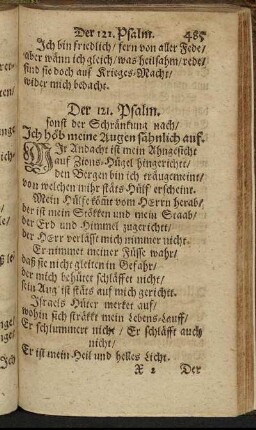 Der 121. Psalm. 485
Ich bin friedlich / fern von aller Fede /
aber wann ich gleich / was heilsahm / rede /
sind sie doch auf Krieges-Macht /
wider mich bedacht.
Der 121. Psalm.
sonst der Schränkung nach /
Ich hôb meine Augen sähnlich auf.
Mit Andacht ist mein Ahngesicht
auf Zions-Hügel hingerichtt /
den Bergen bin ich träugemeint /
von welchen mihr stäts Hülf erscheint.
Mein Hülfe kömt vom HErrn herab /
der ist mein Stökken und mein Staab /
der Erd und Himmel zugericht /
der HErr verlässt mich nimmer nicht.
Er nimmet meiner Füsse wahr /
daß sie nicht gleiten in Gefahr /
der mich behütet schläffet nicht /
sein Aug' ist stäts auf mich gericht.
Israels Hüter merket auf /
wohin sich sträkkt mein Lebens-Lauff /
Er schlummert nicht / Er schläfft auch
nicht /
Er ist mein Heil und helles Licht.
X 2 Der